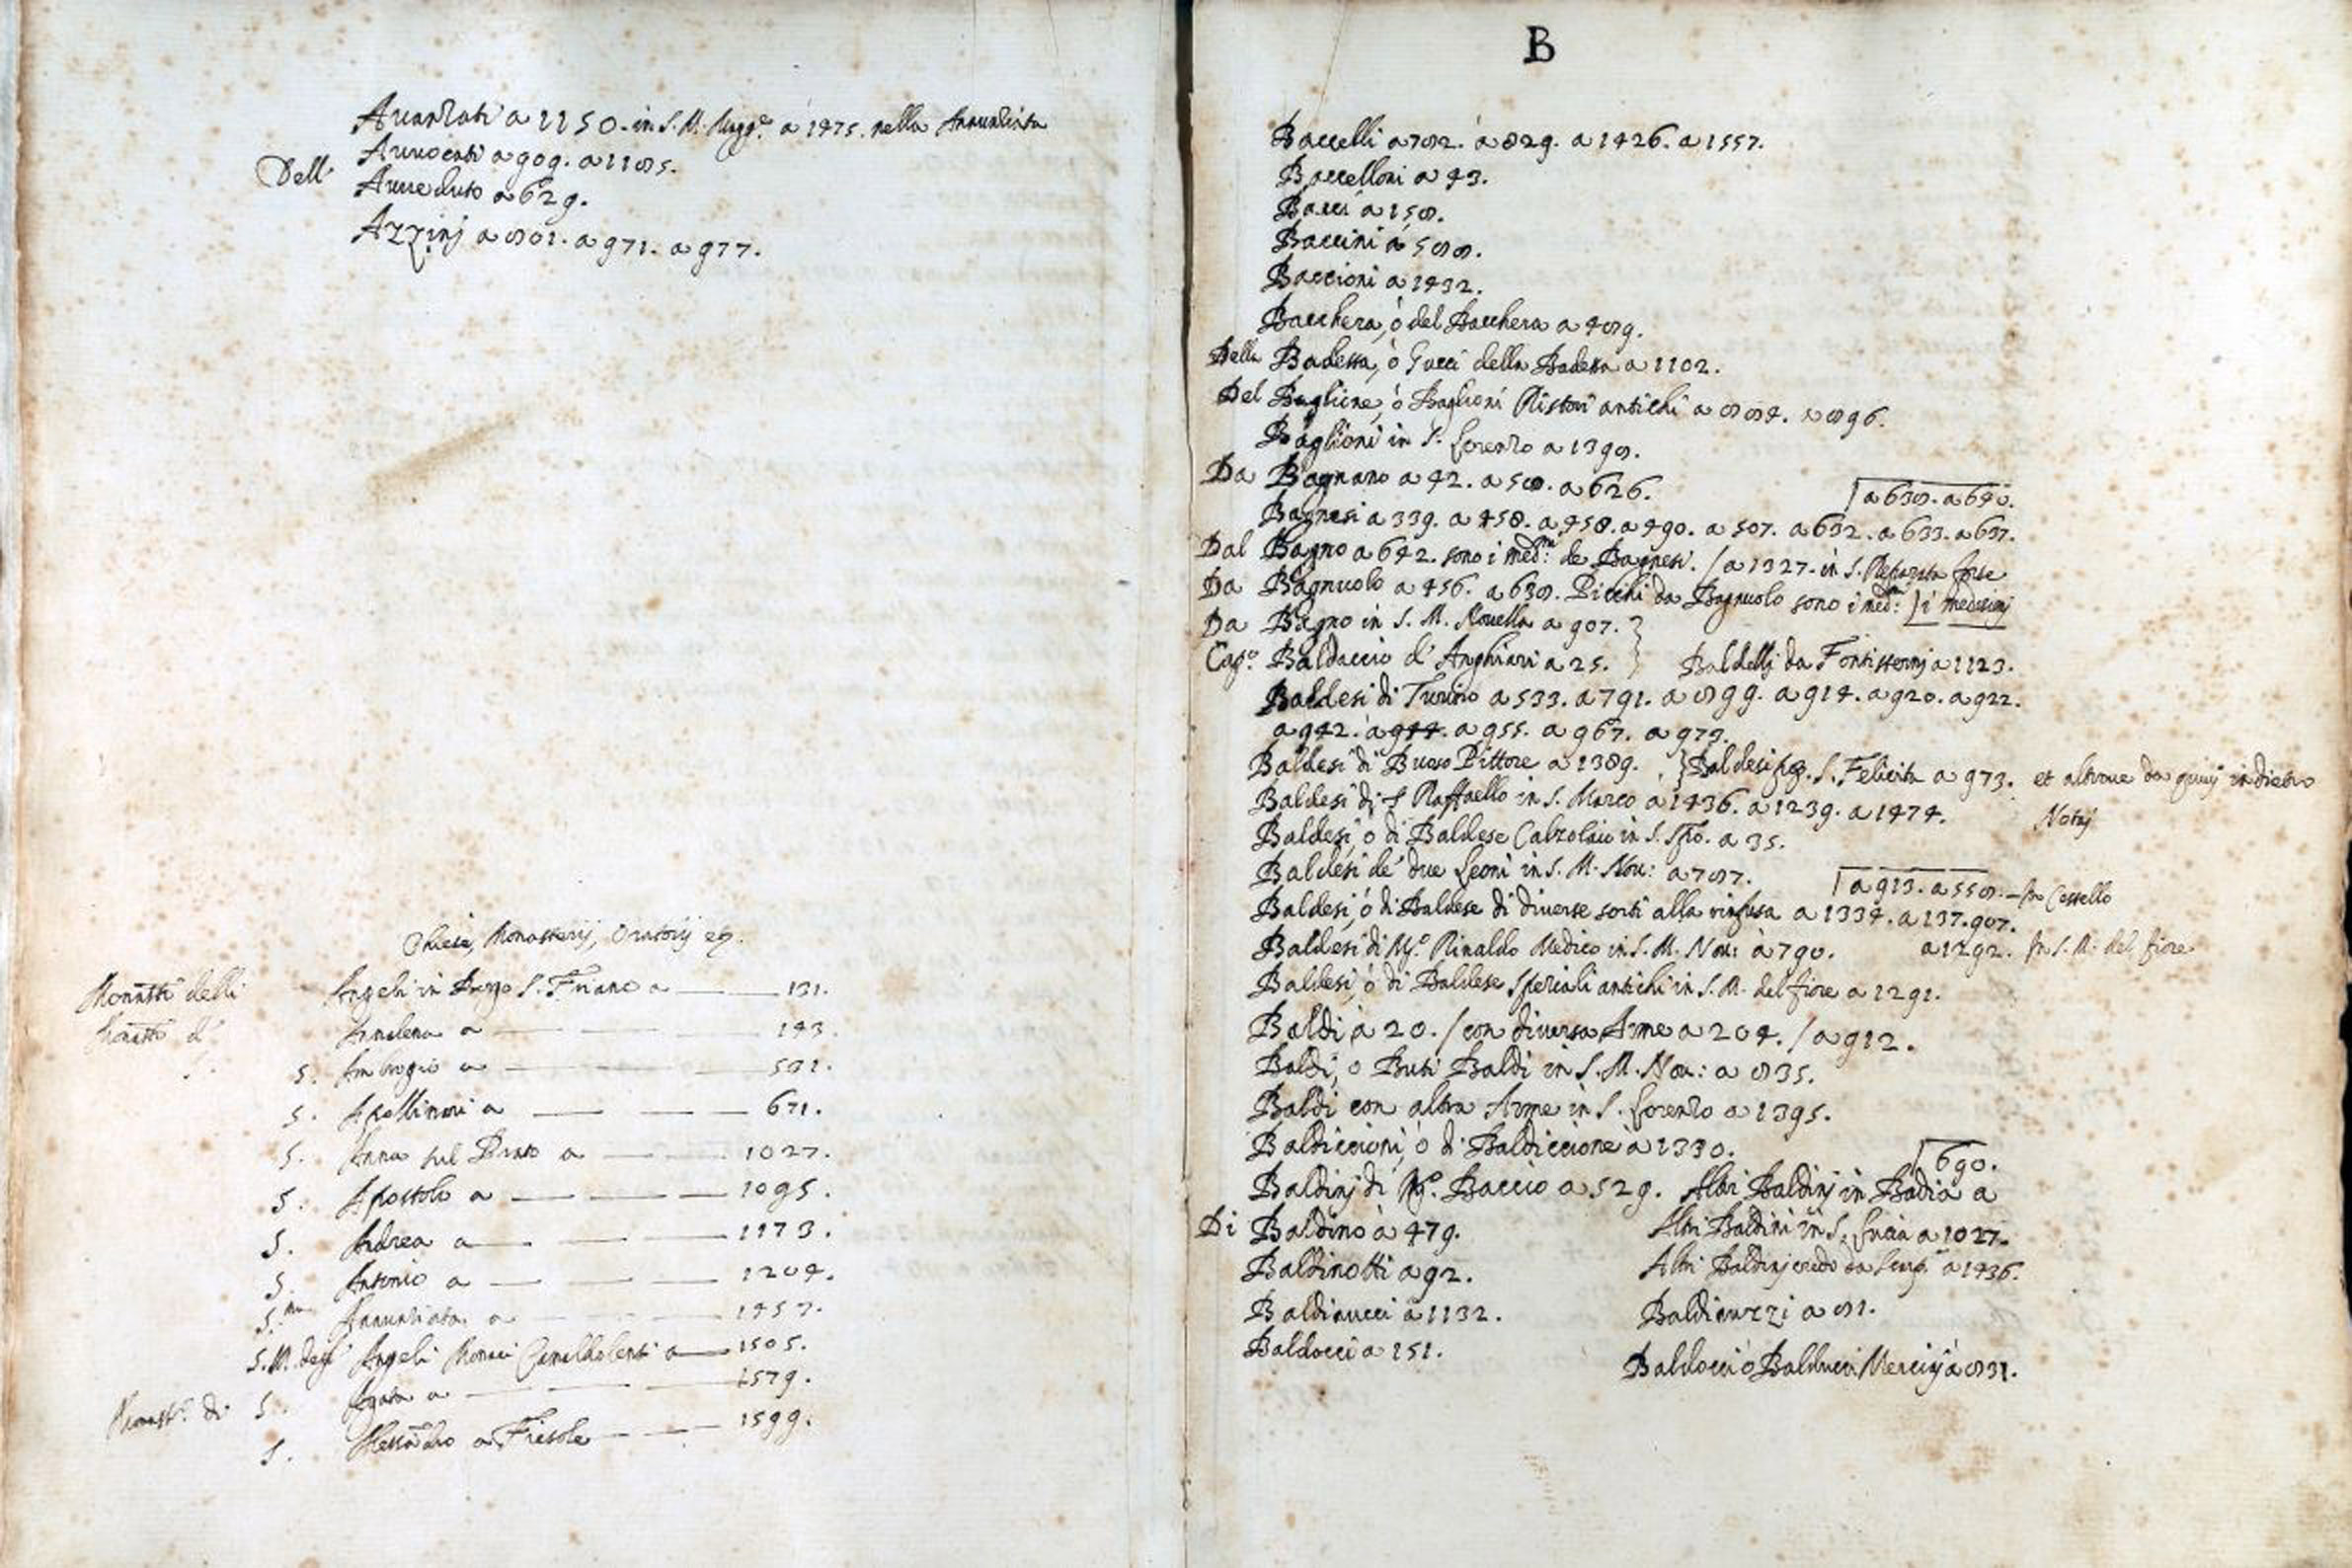 Auanzati a 1150. in S. M. Magg.e a 1475. nella Annunziata
Auuocati a 909. a 1185.
Dell' Auueduto a 629.
Azzinj a 801. a 971. a 977.
Chiese, Monasterij, Oratorij
Monast.i delli Angeli in Borgo S. Friano a 131.
Monast.o d' Annalena a 143.
S. Ambrogio a 531.
S. Apollinari a 671.
S. Anna sul Prato a 1027.
S. Apostolo a 1095.
S. Andrea a 1173.
S. Antonio a 1204.
S.ma Annunziata a 1457.
S. M. degl' Angeli Monaci Camaldolensi a 1505.
Monast.o di S. Agata a 1579.
S. Alessandro a Fiesole 1599.
B
Baccelli a 782. a 829. a 1426. a 1557.
Baccelloni a 43.
Bacci a 158.
Baccini a 588.
Baccioni a 1432.
Bacchera, ò del Bacchera a 489.
Della Badessa, ò Gucci della Badessa a 1102.
Del Baglione, ò Baglioni Ristori antichi a 884. a 896.
Baglioni in S. Lorenzo a 1398.
Da Bagnano a 42. a 58. a 626.
a 638. a 640.
Bagnesi a 339. a 458. a 458. a 490. a 507. a 632. a 633. a 637.
Dal Bagno a 642. sono i med:mi de Bagnesi. / a 1327. in S. Reparata forse
Da Bagnuolo a 456. a 638. Picchi da Bagnuolo sono i med:mi i medesimj
Da Bagno in S. M. Nouella a 907.
Cap.o Baldaccio d' Anghiari a 25. Baldellj da Fontisternj a 1123.
Baldesi di Turino a 533. a 791. a 899. a 914. a 920. a 922.
a 942. a 944. a 955. a 967. a 973.
Baldesi di Buoso Pittore a 1389. Baldesi S. Felicita a 973. et altroue da quiuj indietro
Baldesi di Raffaello in S. Marco a 1436. a 1239. a 1474. Notaj
Baldesi, ò di Baldese Calzolaio in S. Spo. a 35.
Baldesi de' due Leoni in S. M. Nou: a 787.
a 913. a 558. In Cestello
Baldesi, ò di Baldese di diuerse sorti alla rinfusa a 1334. a 137. 907.
Baldesi di M.o Rinaldo Medico in S. M. Nou: à 790. a 1292. In S. M. del fiore
Baldesi, ò di Baldese Speziali antichi in S. M. del fiore a 1291.
Baldi à 20. / con diuersa Arme a 204. / a 912.
Baldi, o Buti Baldi in S. M. Nou: a 835.
Baldi con altra Arme in S. Lorenzo a 1395.
Baldiccioni, ò di Baldiccione à 1330.
690.
Baldinj di M.o Baccio a 529. Altri Baldinj in Badia a
Di Baldino à 479. Altri Baldini in S. Lucia a 1027.
Baldinotti a 92. Altri Baldinj credo da a 1436.
Baldinucci a 1132. Baldinuzzi a 81.
Baldocci a 151. Baldocci ò Balducci Merciaj à 831.